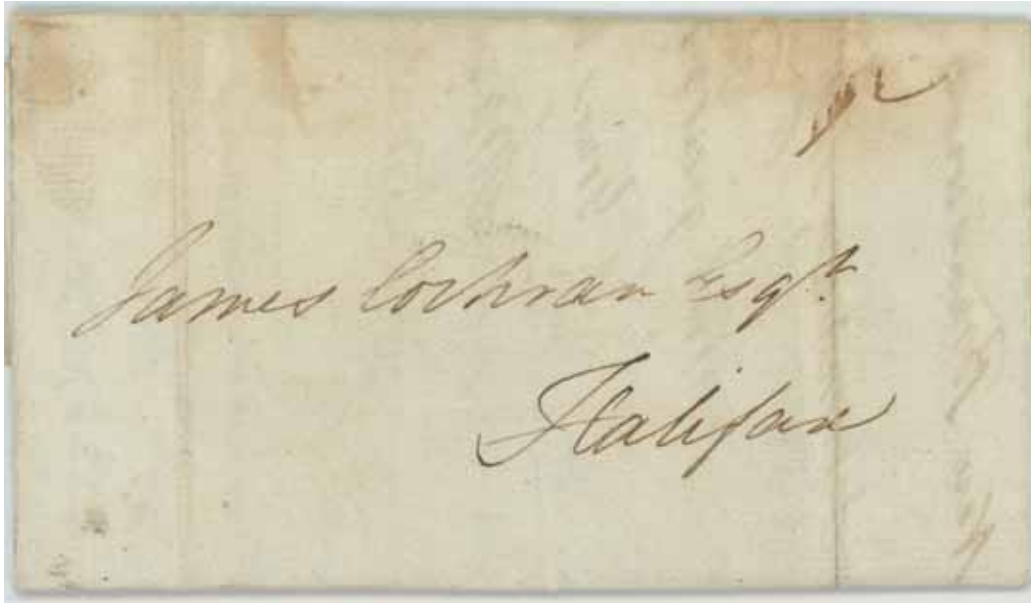 James Cochran Esqr.
Halifax